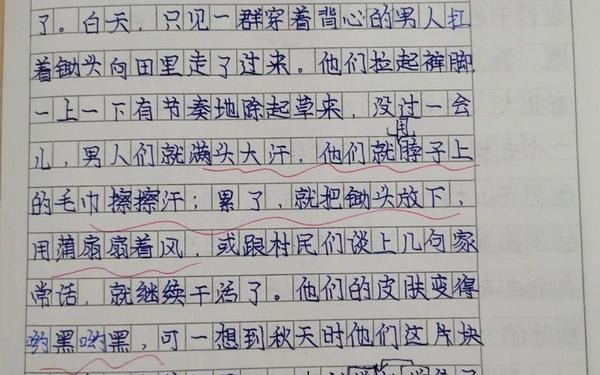 了。白天，只见一群穿着背心的男人扛
着锄头向田里走了过来。他们拉起裤脚，
一上一下有节奏地除起草来，没过一会
儿，男人们就满头大汗，他们就用脖子上
的毛巾擦擦汗；累了，就把锄头放下，
用蒲扇扇着风，或跟村民们谈上几句家
常话，就继续干活了。他们的皮肤变得
哟黑哟黑，可一想到秋天时他们这片块